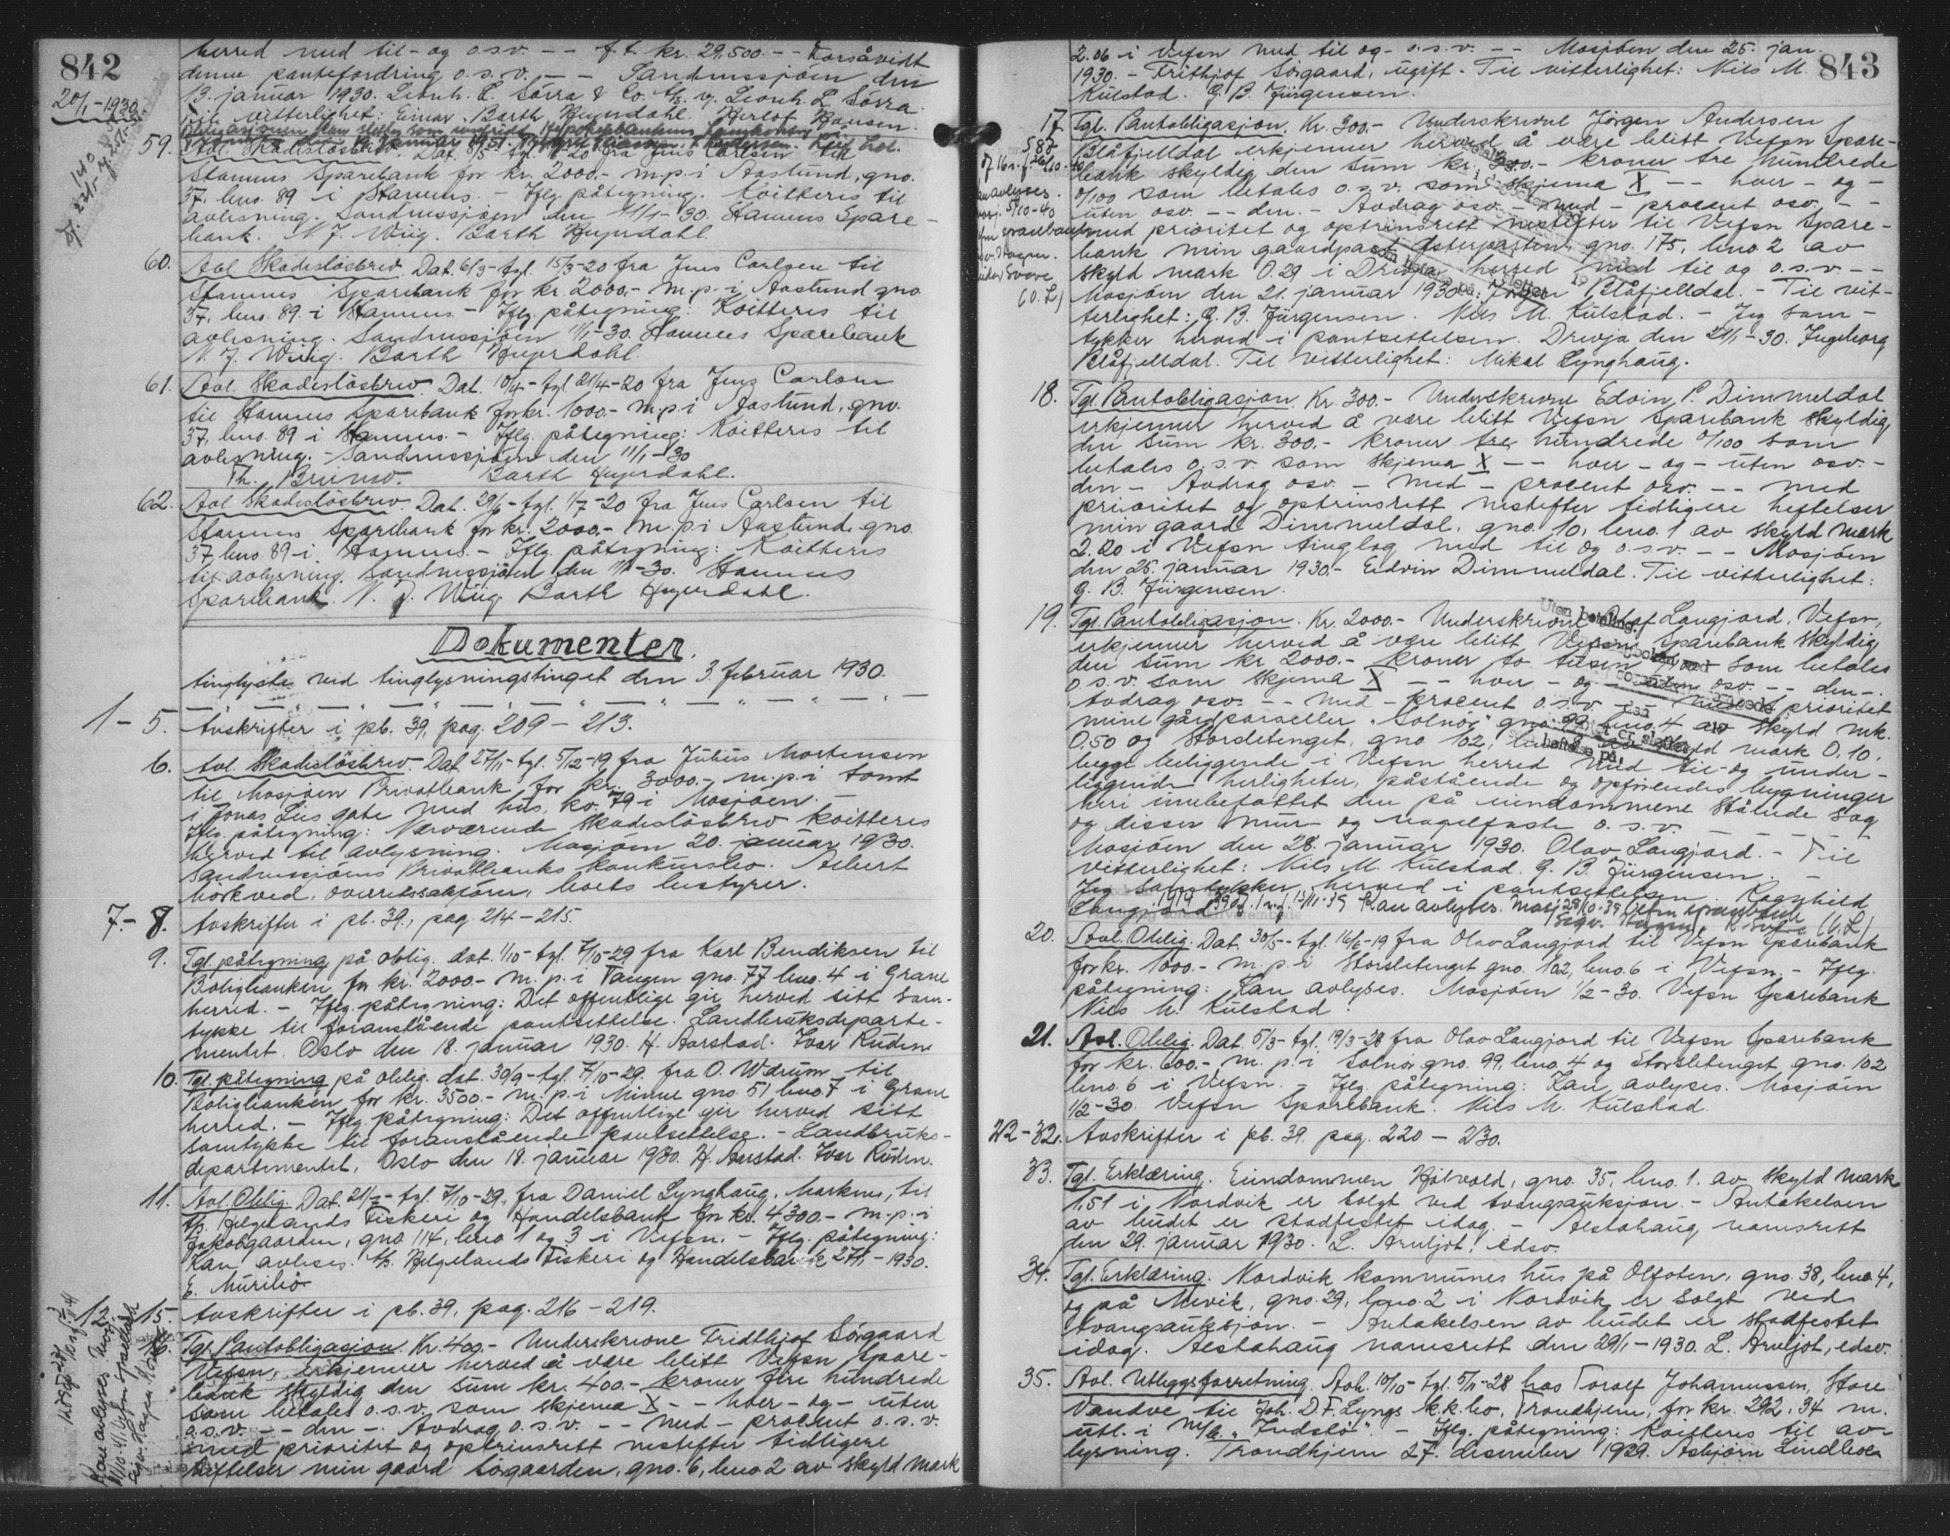 842
20/1-1930.
herred med til- og o.s.v. -- f.t. kr. 29,500.-- Forsåvidt
denne pantefordring o.s.v. -- Sandnessjøen den
13. januar 1930. Leonh. L. Sörra & Co. A/s. v. Leonh. L. Sörra.
Til vitterlighet: Einar Barth Heyerdahl. Herlof Hansen.
59. Avl. Skadesløsbrev. Dat. fra Jens Carlsen til
Stamnes Sparebank for kr. 2000.- m.p.i Aaslund, gno.
37, bno. 89 i Stamnes. - Iflg. påtegning. Kvitteres til
avlysning. Sandnessjøen den 11/1-30. Stamnes Spare-
bank. N. J. Wiig. Barth Heyerdahl.
60. Avl. Skadesløsbrev. Dat. 6/3- tgl. 15/3-20 fra Jens Carlsen til
Stamnes Sparebank for kr. 2000.- m.p.i Aaslund gno
37, bno. 89 i Stamnes. - Iflg. påtegning: Kvitteres til
avlysning. Sandnessjøen 11/1-30. Stamnes Sparebank
N. J. Wiig. Barth Heyerdahl.
61. Avl. Skadesløsbrev. Dat. 10/4- tgl. 21/4-20 fra Jens Carlsen
til Stamnes Sparebank for kr. 1000.- m.p.i Aaslund, gno.
37, bno. 89 i Stamnes. - Iflg. påtegning: Kvitteres til
avlysning. - Sandnessjøen den 11/1-30
Th. Brinso. Barth Heyerdahl.
62. Avl. Skadesløsbrev. Dat. 29/6- tgl. 1/7-20 fra Jens Carlsen til
Stamnes Sparebank for kr. 2000.- m.p.i Aaslund, gno.
37, bno. 89 i Stamnes. - Iflg. påtegning: Kvitteres
til avlysning. Sandnessjøen den 11/1-30. Stamnes
Sparebank. N. J. Wiig. Barth Heyerdahl.
Dokumenter
tinglyste ved tinglysningstinget den 3. februar 1930.
1-5. Avskrifter i pb. 39, pag. 209 - 213.
6. Avl. Skadesløsbrev. Dat. 27/11- tgl. 5/12-19 fra Julius Mortensen
til Mosjøen Privatbank for kr. 3000.-, m.p.i tomt
i Jonas Lies gate med hus, no. 79 i Mosjøen. -
Iflg. påtegning: Nærværende Skadesløsbrev kvitteres
herved til avlysning. Mosjøen 20. januar 1930.
Sandnessjøens Privatbanks konkursbo. Albert
Mörkved, overrettssakfører, boets bestyrer.
7-8. Avskrifter i pb. 39, pag. 214 - 215.
9. Tgl. påtegning på oblig. dat. 1/10- tgl. 7/10-29 fra Karl Bendiksen til
Boligbanken for kr. 2000.- m.p.i Tangen gno. 77 bno. 4 i Grane
herred. - Iflg. påtegning: Det offentlige gir herved sitt sam-
tykke til foranstående pantsettelse. Landbruksdeparte-
mentet, Oslo den 18. januar 1930. H. Aarstad. Ivar Ruden
10. Tgl. påtegning på oblig. dat. 30/9- tgl. 7/10-29 fra O. Wdrum til
Boligbanken for kr. 3500.- m.p.i Minne gno. 51 bno. 7 i Grane
herred. - Iflg. påtegning: Det offentlige gir herved sitt
samtykke til foranstående pantsettelse. - Landbruks-
departementet, Oslo den 18. januar 1930. H. Aarstad. Ivar Ruden.
11. Avl. Oblig. Dat. 21/9- tgl. 7/10-29, fra Daniel Lynghaug, Markens, til
A/s. Helgelands Fiskeri og Handelsbank for kr. 4300.- m.p.i
Jakobgaarden, gno 114, bno 1 og 3 i Vefsn. - Iflg. påtegning:
Kan avleses. A/s. Helgelands Fiskeri og Handelsbank 27/1-1930.
E. Nurilio
12-15. Avskrifter i pb. 39, pag. 216 - 219.
16. Tgl. Pantobligasjon. Kr. 400.- Underskrevne Fridthjof Sørgaard
Vefsn, erkjenner herved å være blitt Vefsn Spare-
bank skyldig den sum kr. 400.- kroner fire hundrede
som betales o.s.v. som skjema X - - hver - og - uten
o.s.v. - - den - . Avdrag o.s.v. - - med - procent o.s.v.
med prioritet og optrinsrett nestefter tidligere
heftelser min gaard Sørgaarden, gno. 6, bno 2 av skyld mark
843
2.06 i Vefsn med til og- o.s.v. -- Mosjøen den 25. jan.
1930. - Frithjof Sørgaard, ugift. - Til vitterlighet: Nils M.
Kulstad. G. B. Jürgensen.
17. Tgl. Pantobligasjon. Kr. 300.- Underskrevne Jörgen Andersen
Blåfjelldal erkjenner herved å være blitt Vefsn Spare-
bank skyldig den sum kr. 300.- kroner tre hundrede
0/100 som betales o.s.v. som skjema X - - hver - og -
uten osv. - - den - . Avdrag osv. - med - procent osv. - -
med prioritet og optrinsrett nestefter til Vefsn Spare-
bank min gaardpart Østerparten, gno. 175, bno 2 av
skyld mark 0.29 i Drevja herred med til og o.s.v. - -
Mosjøen den 21. januar 1930. Jörgen Blåfjelldal. - Til vit-
terlighet: G. B. Jürgensen. Nils M. Kulstad. - Jeg sam-
tykker herved i pantsettelsen. Drevja den 21/1-30. Ingeborg
Blåfjelldal. Til vitterlighet: Mikal Lynghaug.
18. Tgl. Pantobligasjon. Kr. 300.- Underskrevne Edvin P. Dimmeldal
erkjenner herved å være blitt Vefsn Sparebank skyldig
den sum kr. 300.- kroner tre hundrede 0/100 som
betales o.s.v. som skjema X - - hver - og - uten osv. -
den - Avdrag osv. - med - procent osv. - - med
prioritet og optrinsrett nestefter tidligere heftelser
min gaard Dimmeldal, gno. 10, bno. 1 av skyld mark
2.20 i Vefsn tinglag med til og o.s.v. - - Mosjøen
den 25. januar 1930. - Edvin Dimmeldal. Til vitterlighet:
G. B. Jürgensen.
19. Tgl. Pantobligasjon. Kr. 2000.- Underskrevne Olaf Langjord, Vefsn,
erkjenner herved å være blitt Vefsn Sparebank skyldig
den sum kr 2000.- kroner to tusen 0/100 som betales
o.s.v. som skjema X - - hver - og - uten osv - - den -.
Avdrag osv. - - med - procent o.s.v. - - med prioritet
mine gårdparseller "Solnös" gno. 99, bno. 4 av skyld mk.
0,50 og Storsletenget, gno 102, bno 6 av skyld mark 0,10,
begge beliggende i Vefsn herred med til- og under-
liggende herligheter, påstående og opførendes bygninger
heri innbefattet den på eiendommene stående sag
og disses mur- og nagelfaste o.s.v.
Mosjøen den 28. januar 1930. Olav Langjord. - Til
vitterlighet: Nils M. Kulstad. G. B. Jürgensen. -
Jeg samtykker herved i pantsettelsen. Ragnhild
Langjord. Kan avlyses. Mosj 28/10-39 Vefsn Sparebank
Sigv. Hagen (G.L)
20. Avl. Oblig. Dat. 30/5- tgl. 16/6-19 fra Olav Langjord til Vefsn Sparebank
for kr. 1000.- m.p.i Storsletenget gno. 102, bno. 6 i Vefsn. - Iflg.
påtegning: Kan avlyses. Mosjøen 1/2-30. Vefsn Sparebank
Nils M. Kulstad.
21. Avl. Oblig. Dat. 5/3- tgl. 19/3-28 fra Olav Langjord til Vefsn Sparebank
for kr. 600.- m.p.i Solnös gno. 99, bno. 4 og Storsletenget, gno. 102
bno. 6 i Vefsn. - Iflg. påtegning: Kan avlyses. Mosjøen
1/2-30. Vefsn Sparebank. Nils M. Kulstad.
22-32. Avskrifter i pb. 39. pag. 220 - 230.
33. Tgl. Erklæring. Eiendommen Holvold, gno. 35, bno. 1. av skyld mark
1,51 i Nordvik er solgt ved tvangsauksjon. - Antakelsen
av budet er stadfestet idag. - Alstahaug namsrett
den 29. januar 1930. L. Arnljot, edsv.
34. Tgl. Erklæring. Nordvik kommunes hus på Olfoten, gno. 38, bno 4,
og på Mevik, gno. 29, bno. 2 i Nordvik er solgt ved
tvangsauksjon. - Antakelsen av budet er stadfestet
idag. Alstahaug namsrett den 29/1-1930. L. Arnljot, edsv.
35. Avl. Utleggsforretning. Avh. 10/10- tgl. 5/11-28 hos Toralf Johannessen, Store
Vandve til Joh. D. F. Lyngs k.k. bo, Trondhjem, for kr. 292,34 m.
utl. i M/k. "Indslö" - Iflg. påtegning: Kvitteres til av-
lysning. Trondhjem 27. desember 1929. Asbjørn Lindboe